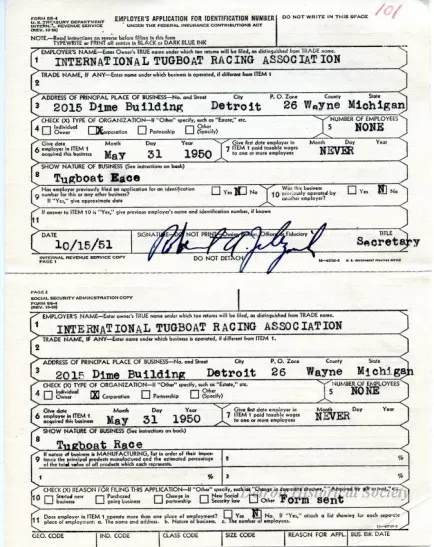 101
FORM SS-4
U. S. TREASURY DEPARTMENT
INTERNAL REVENUE SERVICE
EMPLOYER'S APPLICATION FOR IDENTIFICATION NUMBER
UNDER THE FEDERAL INSURANCE CONTRIBUTIONS ACT
DO NOT WRITE IN THIS SPACE
NOTE.—Read instructions on reverse before filling in this form
TYPEWRITE or PRINT all entries in BLACK or DARK BLUE INK
1 EMPLOYER'S NAME—Enter Owner's TRUE name under which tax returns will be filed, as distinguished from TRADE name.
INTERNATIONAL TUGBOAT RACING ASSOCIATION
2 TRADE NAME, IF ANY—Enter name under which business is operated, if different from ITEM 1
3 ADDRESS OF PRINCIPAL PLACE OF BUSINESS—No. and Street City P. O. Zone County State
2015 Dime Building Detroit 26 Wayne Michigan
4 CHECK (X) TYPE OF ORGANIZATION—If "Other" specify, such as "Estate," etc.
Individual Owner X Corporation Partnership Other (Specify)
5 NUMBER OF EMPLOYEES
NONE
6 Give date employer in ITEM 1 acquired this business Month Day Year
May 31 1950
7 Give first date employer in ITEM 1 paid taxable wages to one or more employees Month Day Year
NEVER
8 SHOW NATURE OF BUSINESS (See instructions on back)
Tugboat Race
9 Has employer previously filed an application for an identification number for this or any other business? Yes X No
If "Yes," give approximate date
10 Was this business previously operated by another employer? Yes X No
11 If answer to ITEM 10 is "Yes," give previous employer's name and identification number, if known
DATE
10/15/51
SIGNATURE—DO NOT PRINT
TITLE
Secretary
INTERNAL REVENUE SERVICE COPY
PAGE 1
DO NOT DETACH
U. S. GOVERNMENT PRINTING OFFICE
PAGE 2
SOCIAL SECURITY ADMINISTRATION COPY
FORM SS-4
1 EMPLOYER'S NAME—Enter Owner's TRUE name under which tax returns will be filed, as distinguished from TRADE name.
INTERNATIONAL TUGBOAT RACING ASSOCIATION
2 TRADE NAME, IF ANY—Enter name under which business is operated, if different from ITEM 1.
3 ADDRESS OF PRINCIPAL PLACE OF BUSINESS—No. and Street City P. O. Zone County State
2015 Dime Building Detroit 26 Wayne Michigan
4 CHECK (X) TYPE OF ORGANIZATION—If "Other" specify, such as "Estate," etc.
Individual Owner X Corporation Partnership Other (Specify)
5 NUMBER OF EMPLOYEES
NONE
6 Give date employer in ITEM 1 acquired this business Month Day Year
May 31 1950
7 Give first date employer in ITEM 1 paid taxable wages to one or more employees Month Day Year
NEVER
8 SHOW NATURE OF BUSINESS (See instructions on back)
Tugboat Race
9 If nature of business is MANUFACTURING, list in order of their importance the principal products manufactured and the estimated percentage of the total value of all products which each represents.
1 % 2 % 3 %
10 CHECK (X) REASON FOR FILING THIS APPLICATION—If "Other" specify, such as
Started new business Purchased going business Change in partnership New Social Security law Other Form sent
11 Does employer in ITEM 1 operate more than one place of employment? Yes X No. If "Yes," attach a list showing for each separate
place of employment: a. The name and address. b. Nature of business. c. The number of employees.
GEO. CODE IND. CODE CLASS CODE SIZE CODE REASON FOR APPL. BUS. BIR. DATE